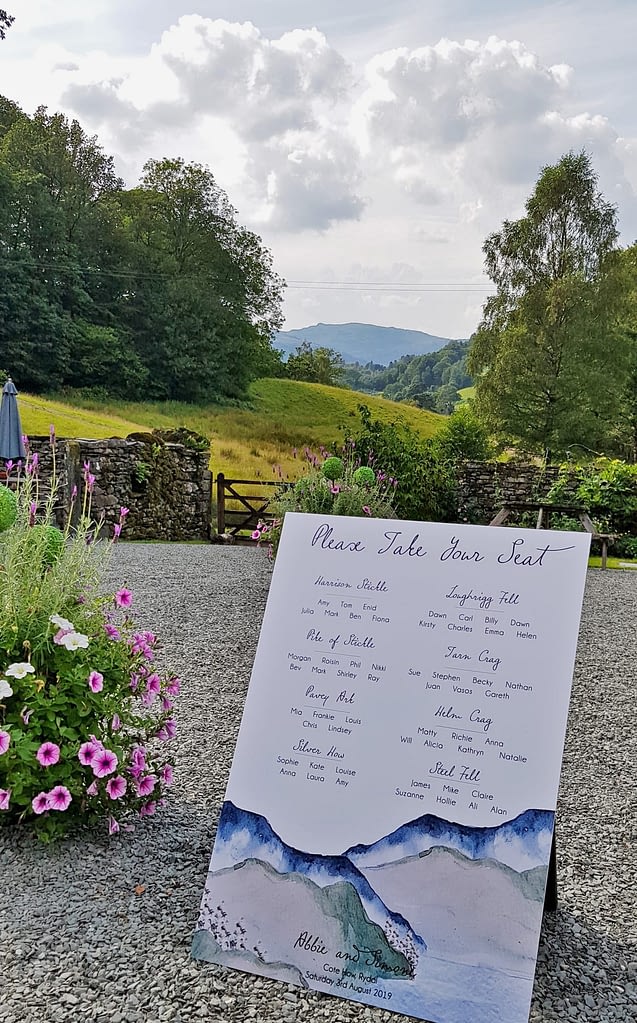 Please Take Your Seat
Harrison Stickle
Amy Tom Enid
Julia Mark Ben Fiona
Pike of Stickle
Morgan Roisin Phil Nikki
Bev Mark Shirley Ray
Pavey Ark
Mia Frankie Louis
Chris Lindsey
Silver How
Sophie Kate Louise
Anna Laura Amy
Loughrigg Fell
Dawn Carl Billy Dawn
Kirsty Charles Emma Helen
Tarn Crag
Sue Stephen Becky Nathan
Juan Vasos Gareth
Helm Crag
Matty Richie Anna
Will Alicia Kathryn Natalie
Steel Fell
James Mike Claire
Suzanne Hollie Ali Alan
Abbie and Simon
Cote How, Rydal
Saturday 3rd August 2019